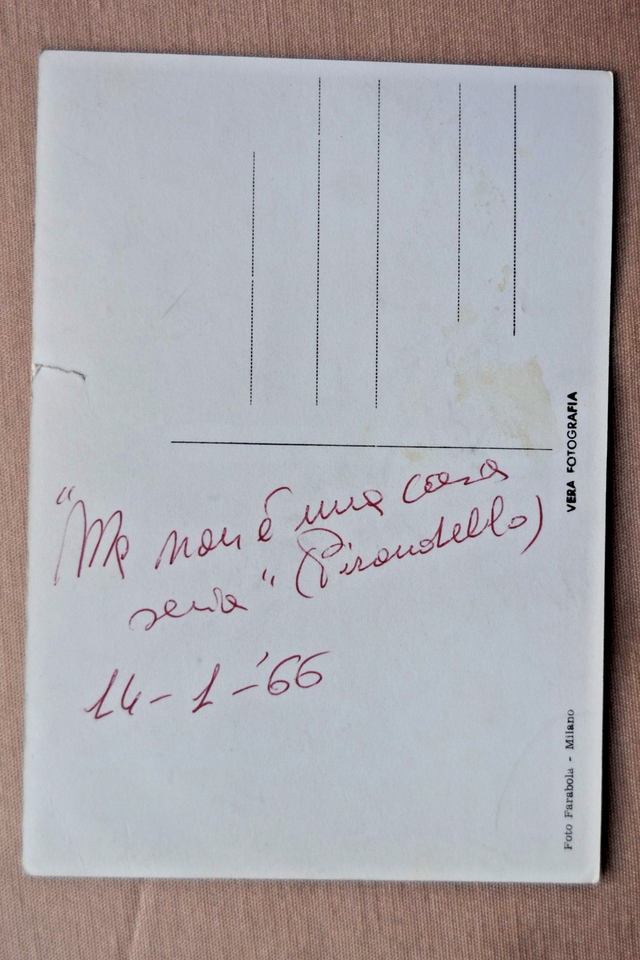 "Ma non è una cosa
seria" (Pirandello)
14-1-'66
VERA FOTOGRAFIA
Foto Farabola - Milano